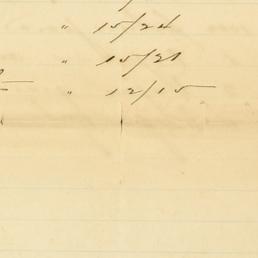 " 15/24
" 15/21
" 12/15